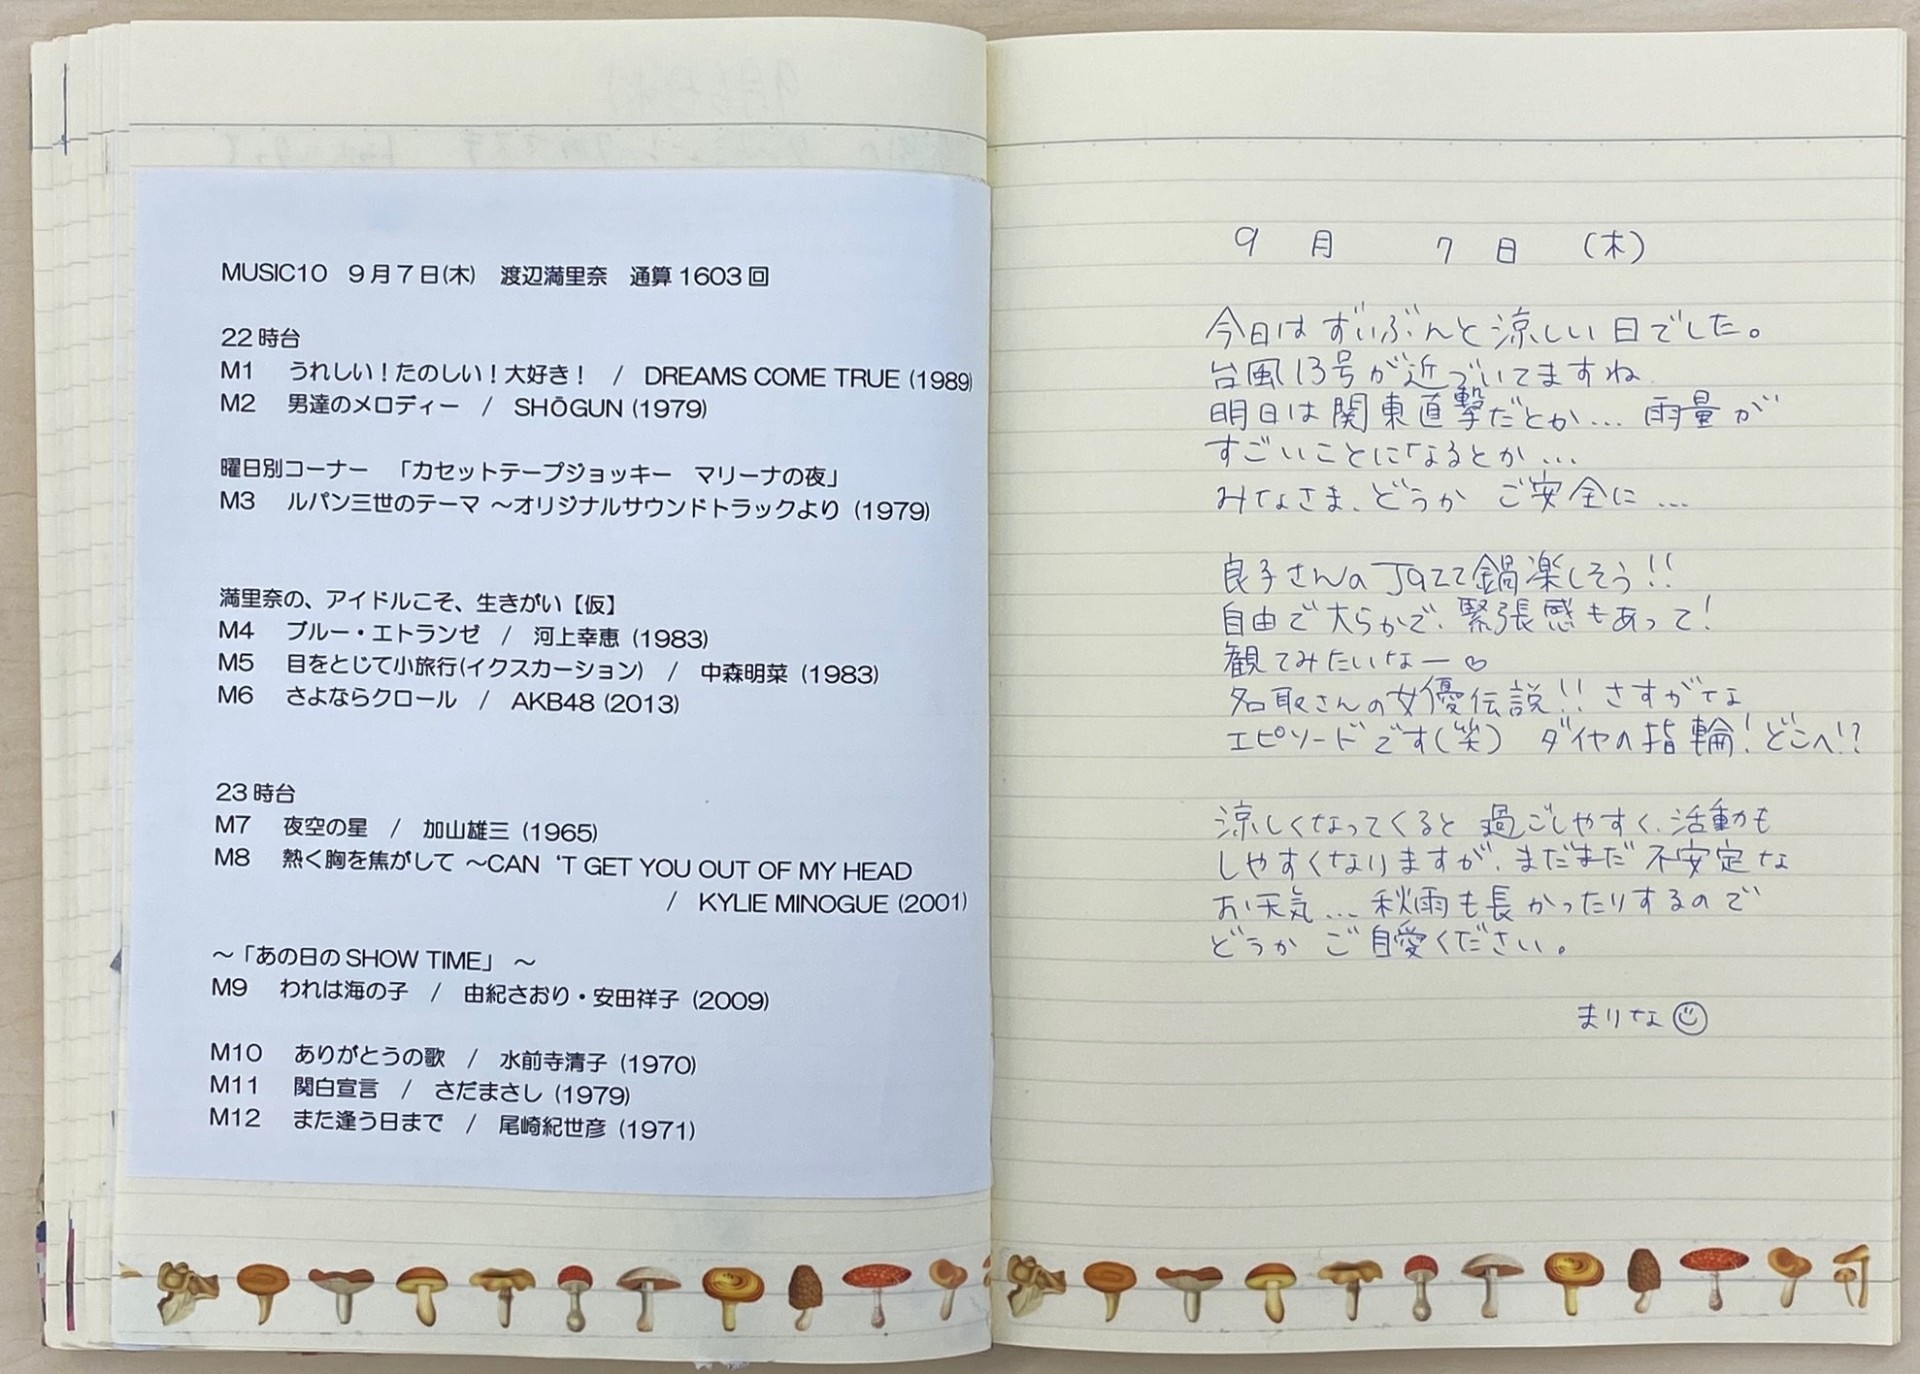 MUSIC10　9月7日(木)　渡辺満里奈　通算1603回
22時台
M1　うれしい！たのしい！大好き！　/　DREAMS COME TRUE (1989)
M2　男達のメロディー　/　SHŌGUN (1979)
曜日別コーナー　「カセットテープジョッキー　マリーナの夜」
M3　ルパン三世のテーマ ～オリジナルサウンドトラックより (1979)
満里奈の、アイドルこそ、生きがい【仮】
M4　ブルー・エトランゼ　/　河上幸恵 (1983)
M5　目をとじて小旅行(イクスカーション)　/　中森明菜 (1983)
M6　さよならクロール　/　AKB48 (2013)
23時台
M7　夜空の星　/　加山雄三 (1965)
M8　熱く胸を焦がして ～CAN‘T GET YOU OUT OF MY HEAD
/　KYLIE MINOGUE (2001)
～「あの日のSHOW TIME」～
M9　われは海の子　/　由紀さおり・安田祥子 (2009)
M10　ありがとうの歌　/　水前寺清子 (1970)
M11　関白宣言　/　さだまさし (1979)
M12　また逢う日まで　/　尾崎紀世彦 (1971)
9月　7日　(木)
今日はずいぶんと涼しい日でした。
台風13号が近づいてますね.
明日は関東直撃だとか… 雨量が
すごいことになるとか…
みなさま、どうか ご安全に…
良子さんのJazz鍋楽しそう!!
自由で大らかで、緊張感もあって!
観てみたいなー♡
名取さんの女優伝説!! さすがな
エピソードです(笑) ダイヤの指輪!どこへ!?
涼しくなってくると 過ごしやすく、活動も
しやすくなりますが、まだまだ 不安定な
お天気… 秋雨も長かったりするので
どうか ご自愛ください。
まりな☺